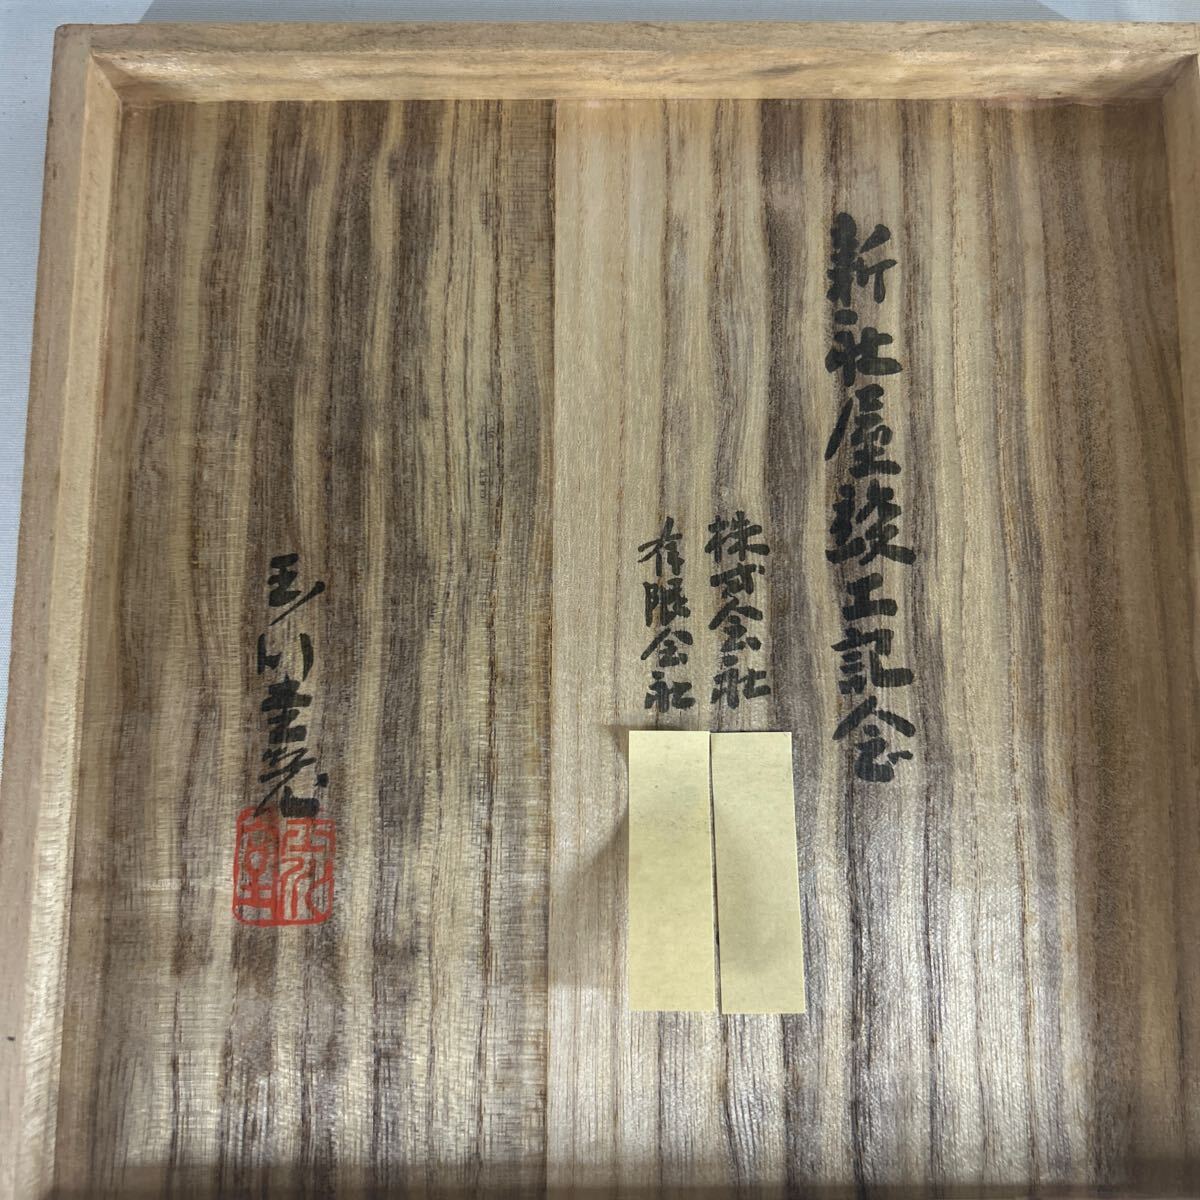 新社屋竣工記念
株式会社
有限会社
玉川